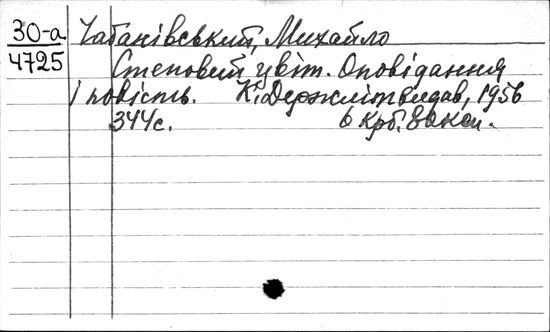 30-а Чабанівський, Михайло
4725 Степовий цвіт. Оповідання
і повість. К., Держлітвидав, 1956
344с. 6 крб. 80коп.